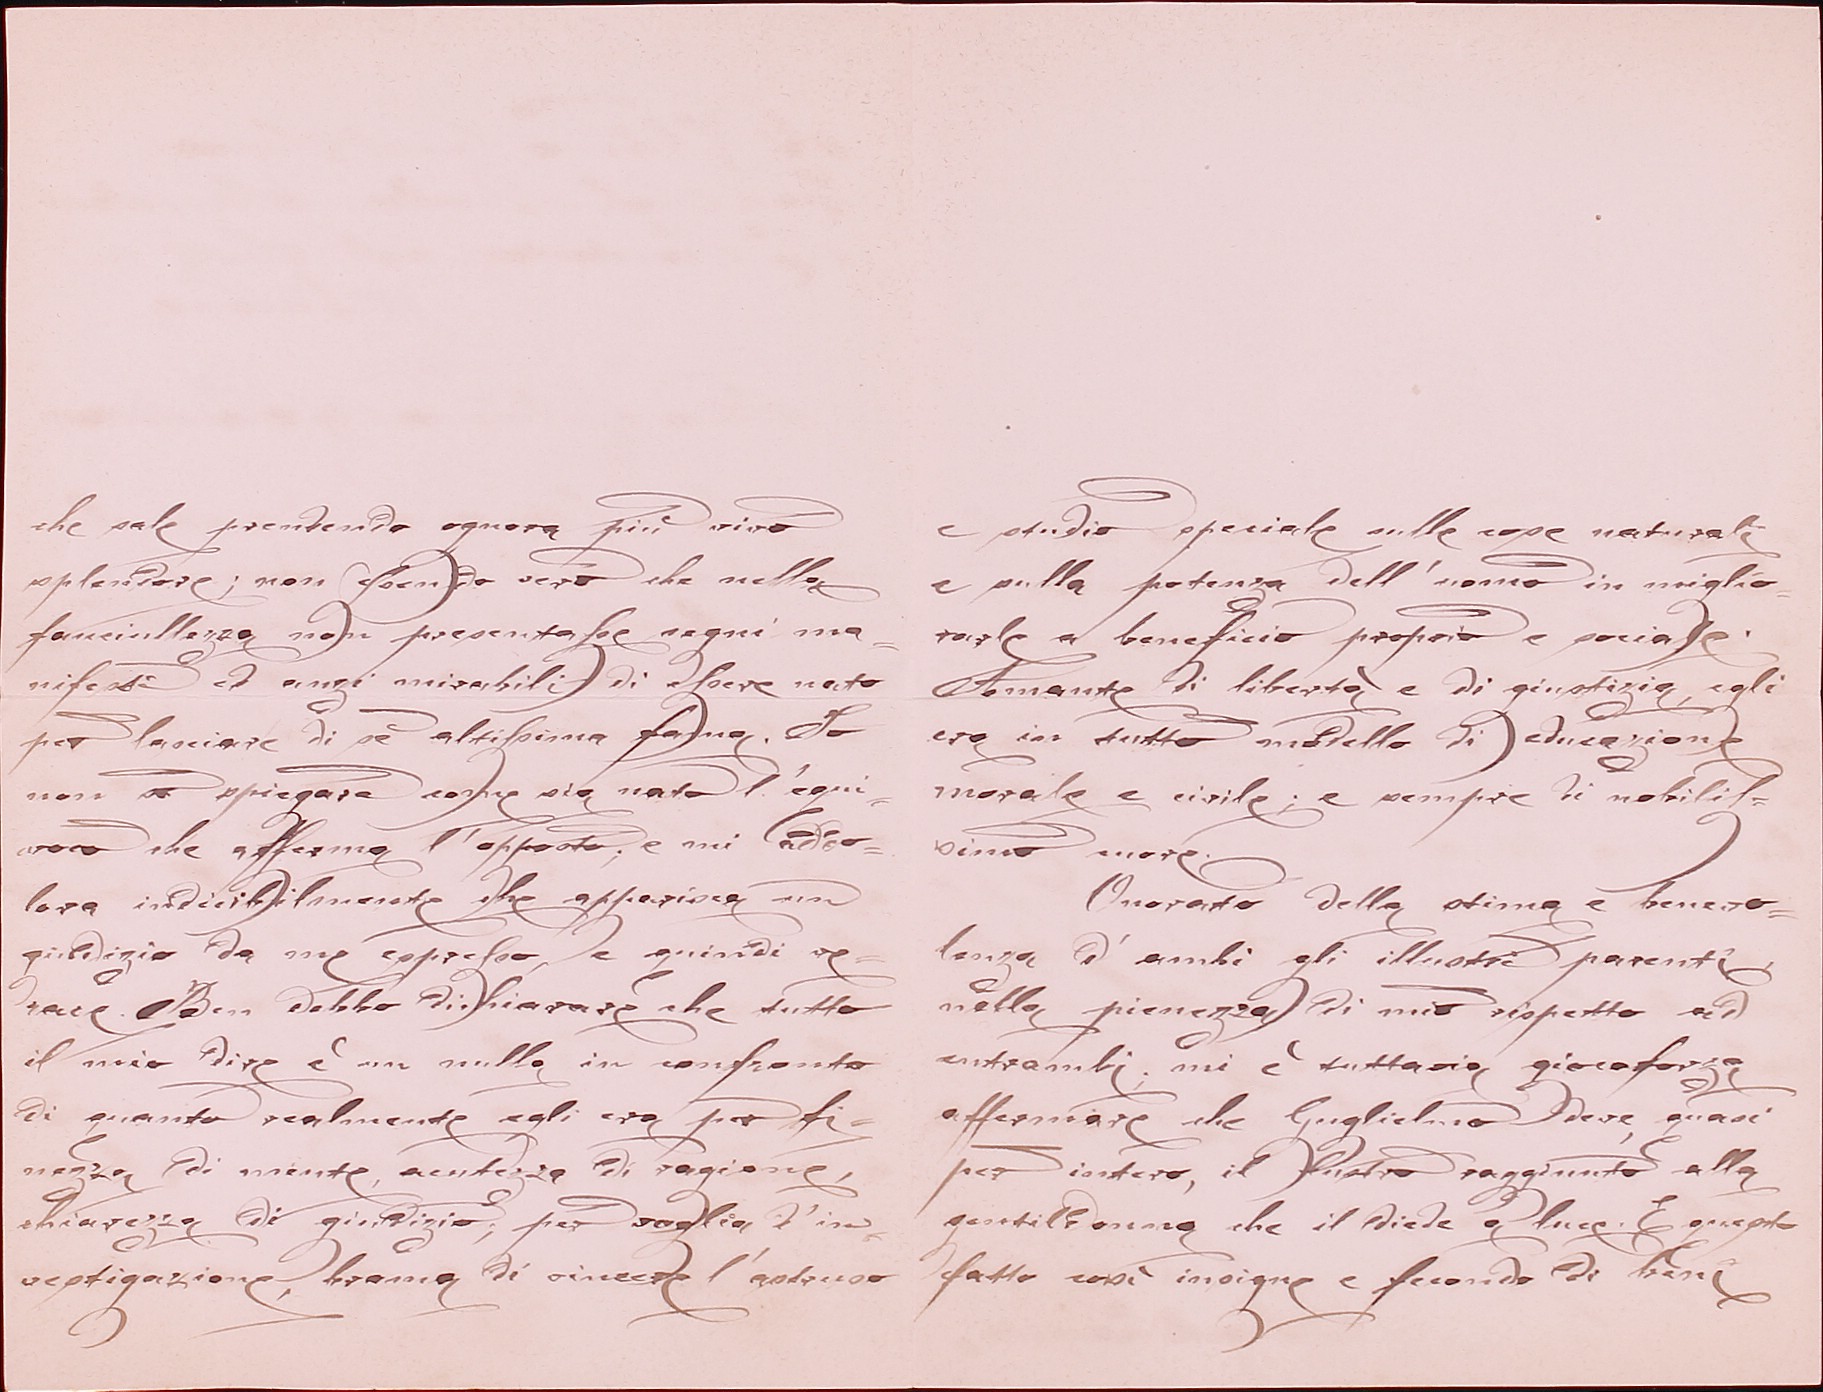 che sale prendendo ognora più vivo
splendore; non essendo vero che nella
fanciullezza non presentasse segni ma=
nifesti ed anzi mirabili di essere nato
per lasciare di sè altissima fama. Io
non so spiegare come sia nato l'equi=
voco che afferma l'opposto; e mi addo=
lora indicibilmente che apparisca un
giudizio da me espresso, e quindi ve=
race. Ben debbo dichiarare che tutto
il mio dire è un nulla in confronto
di quanto realmente egli era per fi=
nezza di mente, acutezza di ragione,
chiarezza di giudizio; per voglia d'in=
vestigazione, brama di vincere l'astruso
e studio speciale sulle cose naturali
e sulla potenza dell'uomo in miglio=
rarle a beneficio proprio e sociale.
Amante di libertà e di giustizia, egli
era in tutto modello di educazione
morale e civile; e sempre di nobilis=
simo cuore.
Onorato della stima e benevo=
lenza d'ambi gli illustri parenti,
nella pienezza di mio rispetto ad
entrambi, mi è tuttavia giocoforza
affermare che Guglielmo deve, quasi
per intero, il lustro raggiunto alla
gentildonna che il diede a luce. E questo
fatto così insigne e fecondo di bene